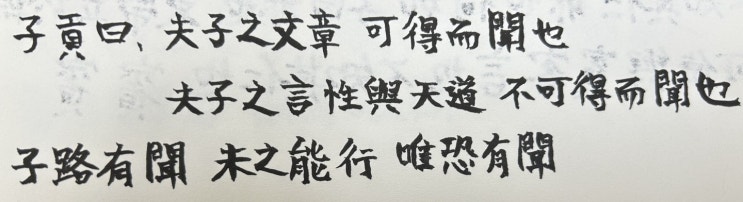 子貢曰、夫子之文章 可得而聞也
夫子之言性與天道 不可得而聞也
子路有聞 未之能行 唯恐有聞